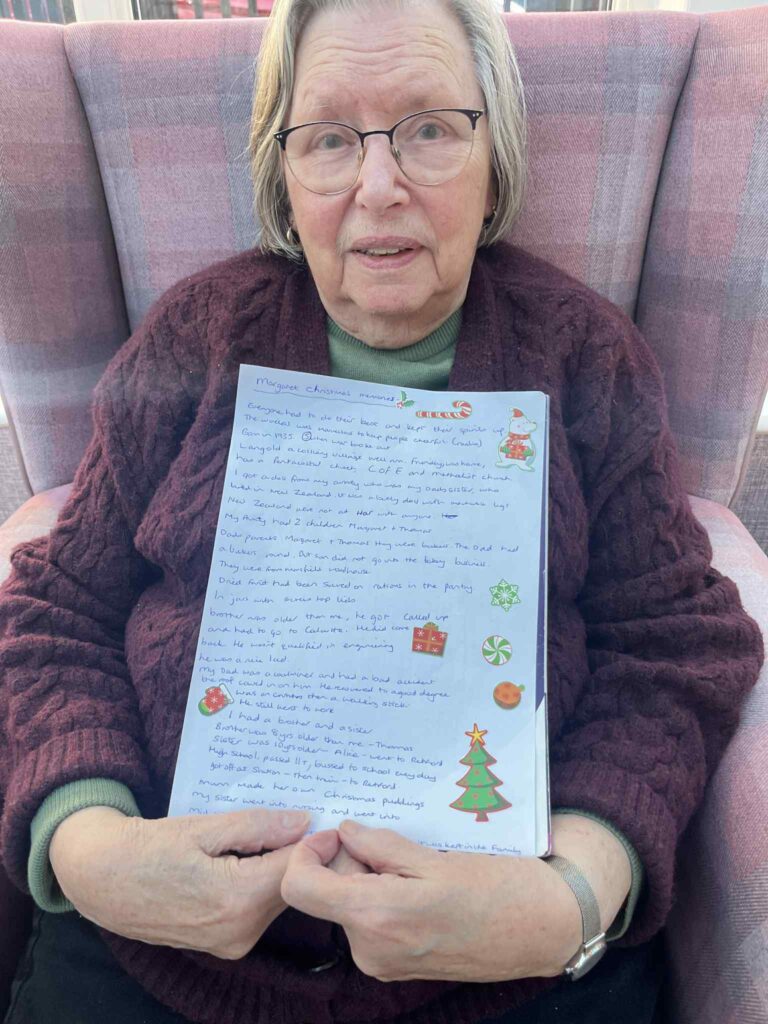 Margaret Christmas memories
Everyone had to do their best and kept their spirits up
The wireless was marvellous to keep people cheerful (radio)
Born in 1935. 5 when war broke out
Langold a colliery village well run. Friendly, welcome,
had a Pentecostal church C. of E and methodist church.
I got a doll from my aunty who was my Dads sister, who
lived in New Zealand it was a lovely doll with moveable legs
New Zealand were not at War with anyone
My Aunty had 2 children Margaret + Thomas
Dads parents Margaret + Thomas they were bakers The Dad had
a bakers round. But son did not go into the bakery business.
They were from Mansfield woodhouse
Dried fruit had been saved on rations in the pantry
In jars with screw top lids
brother was older than me, he got called up
and had to go to Calcutta. He did come
back. He wasn't qualified in engineering
he was a nice lad.
My Dad was a coalminer and had a bad accident
the roof caved in on him He recovered to a good degree
was on crutches then a walking stick.
He still went to work
I had a brother and a sister
Brother was 8 yrs older than me - Thomas
Sister was 10 yrs older - Alice - went to Retford
High School, passed 11+, bussed to school every day
got off at - then train - to Retford
Mum made her own Christmas puddings
My sister went into nursing and went into
it was kept in the Family